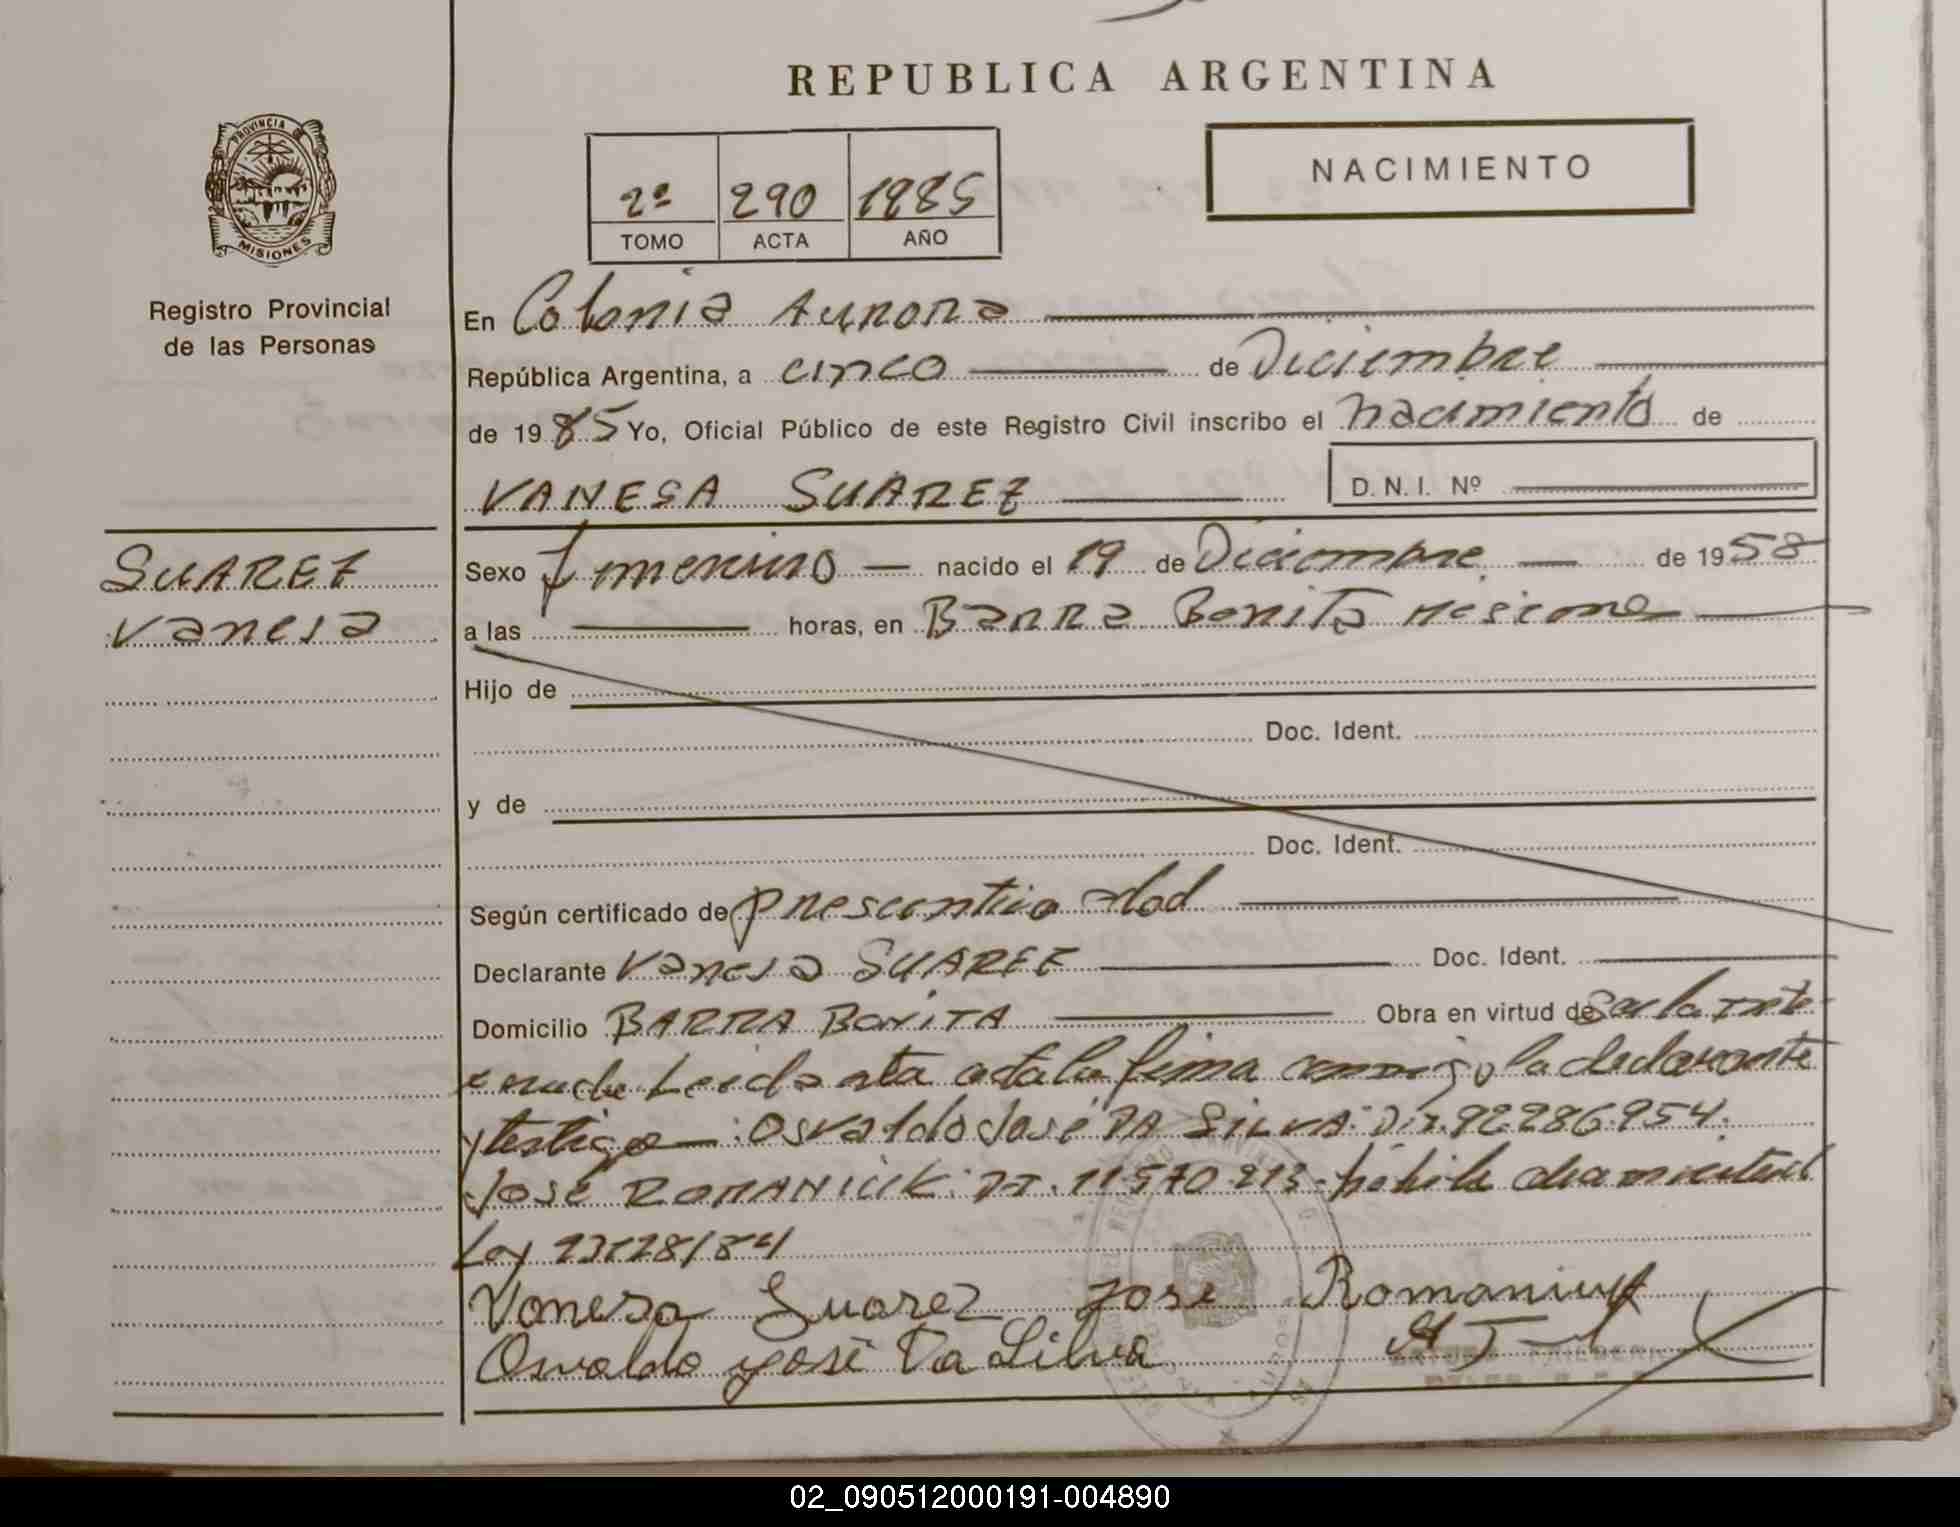 REPUBLICA ARGENTINA
PROVINCIA DE MISIONES
Registro Provincial
de las Personas
2º 290 1985
TOMO ACTA AÑO
NACIMIENTO
En Colonia Aurora
República Argentina, a cinco de Diciembre
de 1985 Yo, Oficial Público de este Registro Civil inscribo el nacimiento de
VANESA SUAREZ D.N.I. Nº
SUAREZ
Vanesa
Sexo femenino nacido el 19 de Diciembre de 1958
a las horas, en Barra Bonita Misiones
Hijo de
Doc. Ident.
y de
Doc. Ident.
Según certificado de edad
Declarante Vanesa SUAREZ Doc. Ident.
Domicilio BARRA BONITA Obra en virtud de
Leida esta acta la firma conmigo la declarante
y testigo: Osvaldo José DA SILVA: 92.286.954.
José ROMANIUK: 11.570.213
Ley /84
Vanesa Suarez José Romaniuk
Osvaldo José Da Silva
02_090512000191-004890